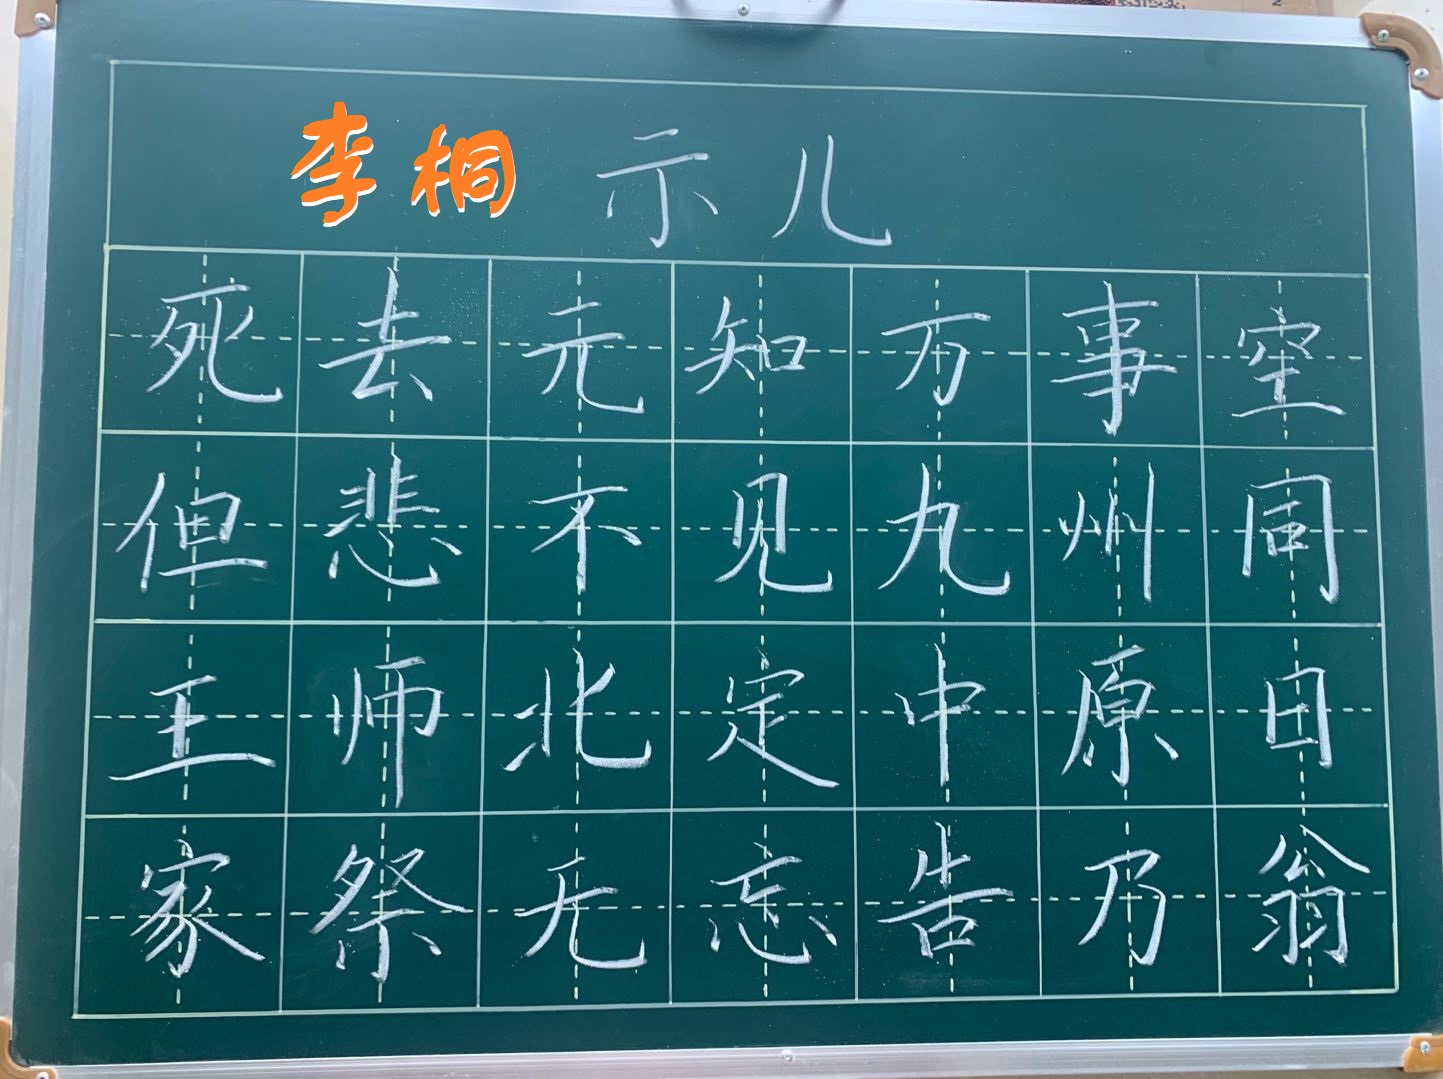 李桐 示儿
死去元知万事空
但悲不见九州同
王师北定中原日
家祭无忘告乃翁